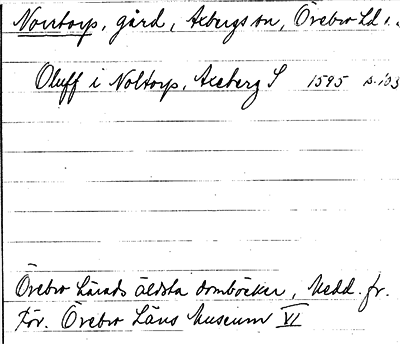 Norrtorp, gård, Axbergs sn, Örebro Ld
Oluff i Noltorp, Axeberg S 1595 s. 103
Örebro Läns äldsta domböcker, Medd. fr.
För. Örebro Läns Museum VI